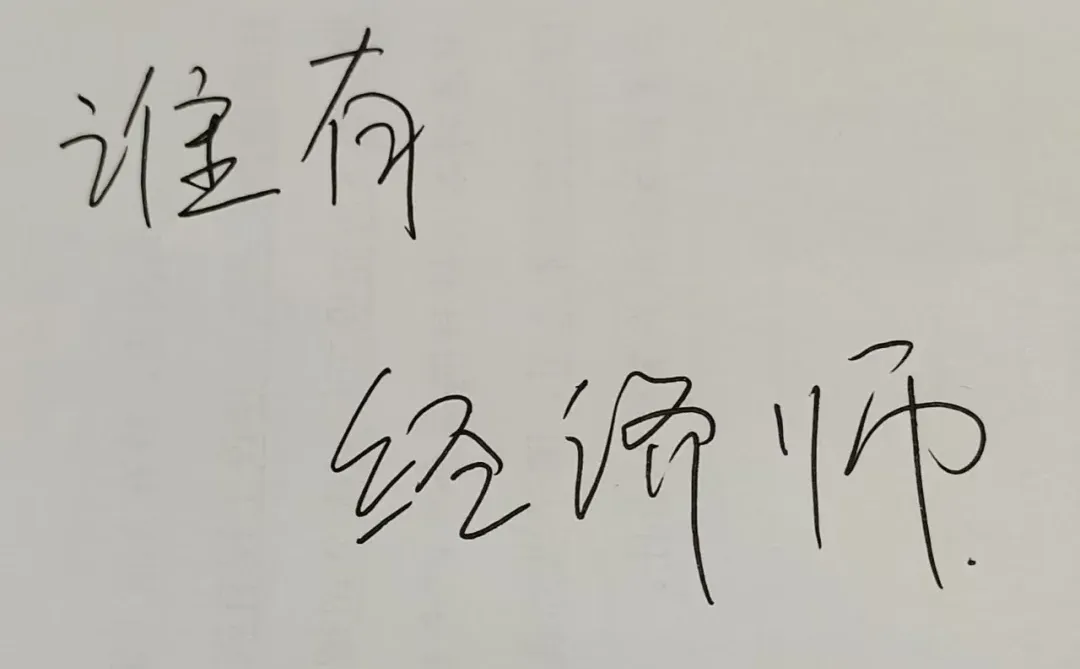 谁有
经济师.